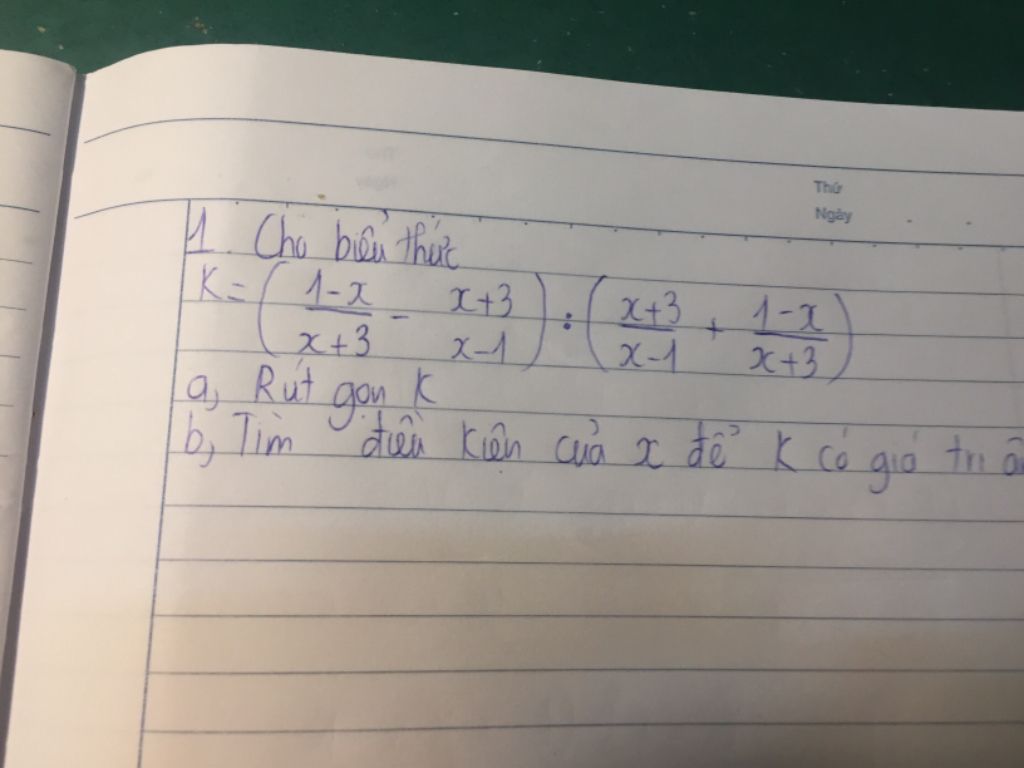 Thứ
Ngày
1. Cho biểu thức
K = (1-x/x+3 - x+3/x-1) : (x+3/x-1 + 1-x/x+3)
a, Rút gọn K
b, Tìm điều kiện của x để K có giá trị